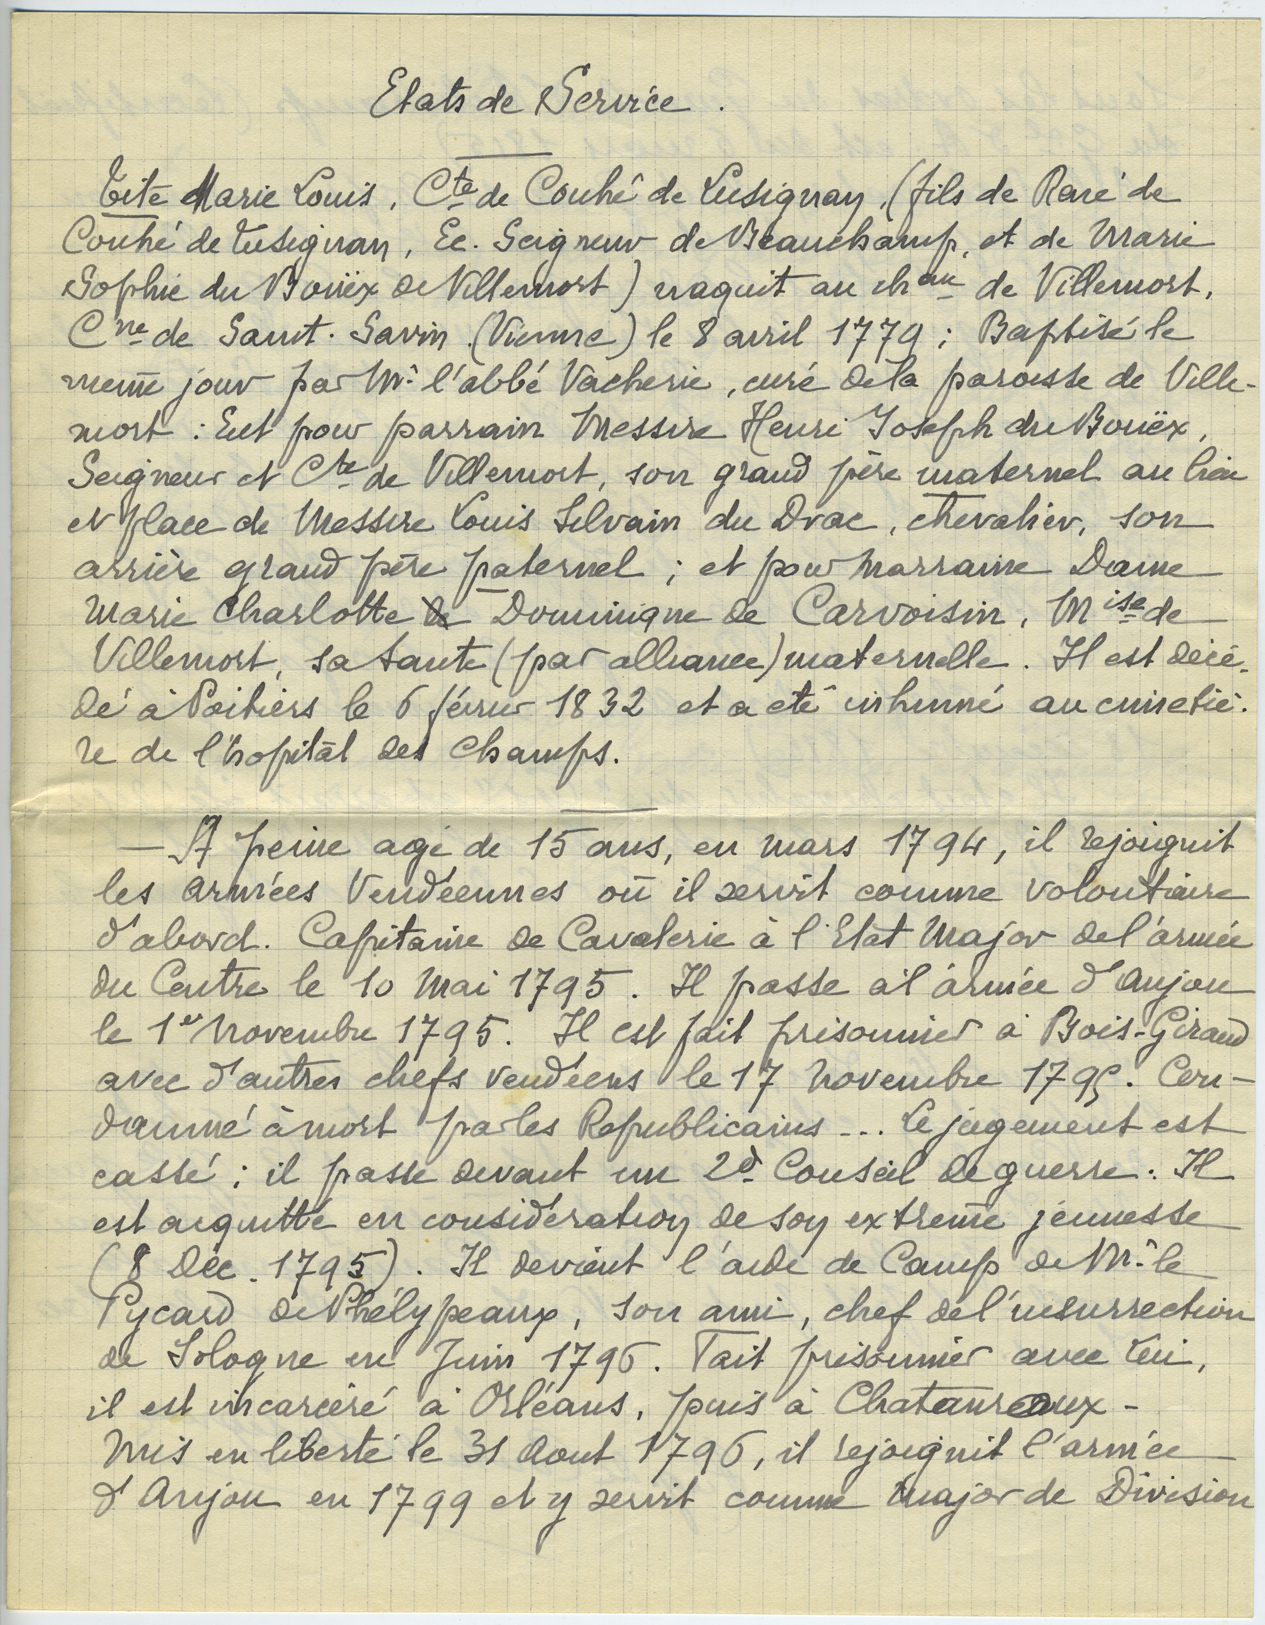 Etats de Service.
Tite Marie Louis, Cte de Couhé de Lusignan, (fils de René de
Couhé de Lusignan, Ec. Seigneur de Beauchamp, et de Marie
Sophie du Bouëx de Villemort) naquit au chau de Villemort,
Cne de Saint-Savin (Vienne) le 8 avril 1779; Baptisé le
même jour par Mr l'abbé Vacherie, curé de la paroisse de Ville-
mort: Eut pour parrain Messire Henri Joseph du Bouëx,
Seigneur et Cte de Villemort, son grand père maternel au lieu
et place de Messire Louis Silvain du Drac, chevalier, son
arrière grand père paternel; et pour marraine Dame
Marie Charlotte Dominique de Carvoisin, Mise de
Villemort, sa tante (par alliance) maternelle. Il est décé-
dé à Poitiers le 6 février 1832 et a été inhumé au cimetiè-
re de l'hopital des Champs.
— A peine agé de 15 ans, en mars 1794, il rejoignit
les armées Vendéennes où il servit comme volontaire
d'abord. Capitaine de Cavalerie à l'Etat Major de l'armée
du Centre le 10 Mai 1795. Il passe à l'armée d'Anjou
le 1er Novembre 1795. Il est fait prisonnier à Bois-Giraud
avec d'autres chefs vendéens le 17 Novembre 1795. Con-
damné à mort par les Republicains... Le jugement est
cassé; il passe devant un 2d Conseil de guerre. Il
est acquitté en considération de son extrême jeunesse
(8 Déc. 1795). Il devient l'aide de Camp de Mr le
Pycard de Phélypeaux, son ami, chef de l'insurrection
de Sologne en Juin 1796. Fait prisonnier avec lui,
il est incarcéré à Orléans, puis à Chateauroux-
Mis en liberté le 31 Aout 1796, il rejoignit l'armée
d'Anjou en 1799 et y servit comme Major de Division